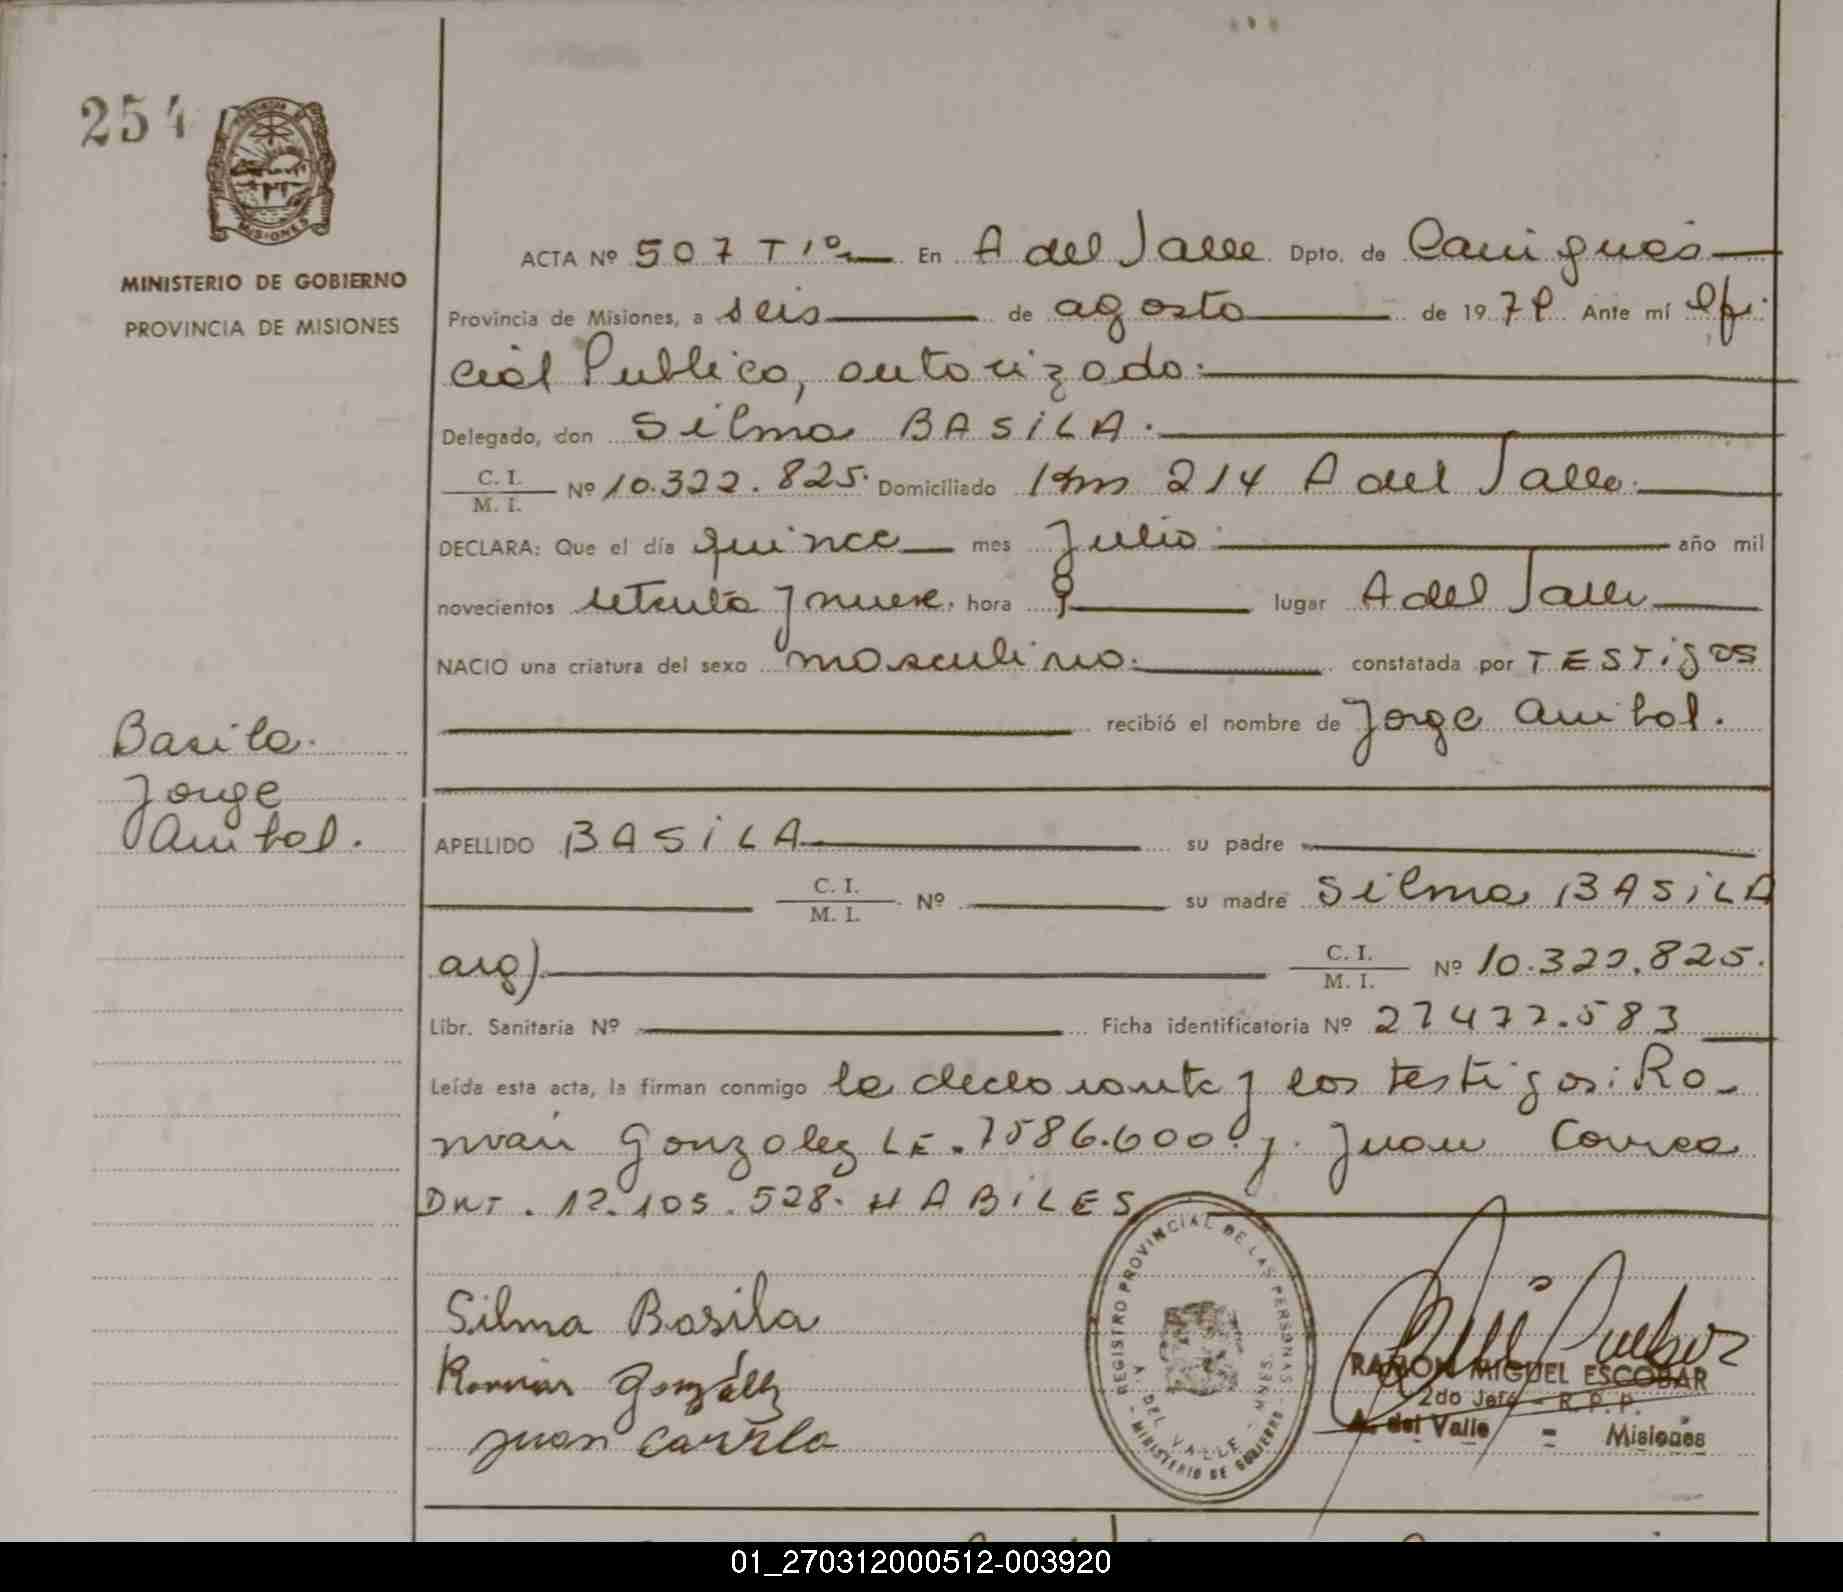 254
MISIONES
MINISTERIO DE GOBIERNO
PROVINCIA DE MISIONES
ACTA Nº 507 T 1º En A del Valle Dpto. de Cainguas
Provincia de Misiones, a seis de agosto de 1979 Ante mí Ofi
cial Publico, autorizado.
Delegado, don Silma BASILA.
C. I.
M. I. Nº 10.322.825. Domiciliado Km 214 A del Valle.
DECLARA: Que el día quince mes Julio año mil
novecientos setenta y nueve. hora 9 lugar A del Valle
NACIO una criatura del sexo masculino. constatada por TESTigos
recibió el nombre de Jorge Anibal.
Basila.
Jorge
Anibal.
APELLIDO BASILA su padre
C. I.
M. I. Nº su madre Silma BASILA
arg) C. I.
M. I. Nº 10.322.825.
Libr. Sanitaria Nº Ficha identificatoria Nº 27477.583
Leída esta acta, la firman conmigo la declarante y los testigos: Ro-
man Gonzalez LE. 7586.600. y. Juan Correa
DNI. 12.105.528. HABILES
Silma Basila
Roman González
Juan
REGISTRO PROVINCIAL DE LAS PERSONAS
A. DEL VALLE - MNES.
- MINISTERIO DE GOBIERNO -
RAMON MIGUEL ESCOBAR
2do Jefe - R. P. P.
A. del Valle = Misiones
01_270312000512-003920